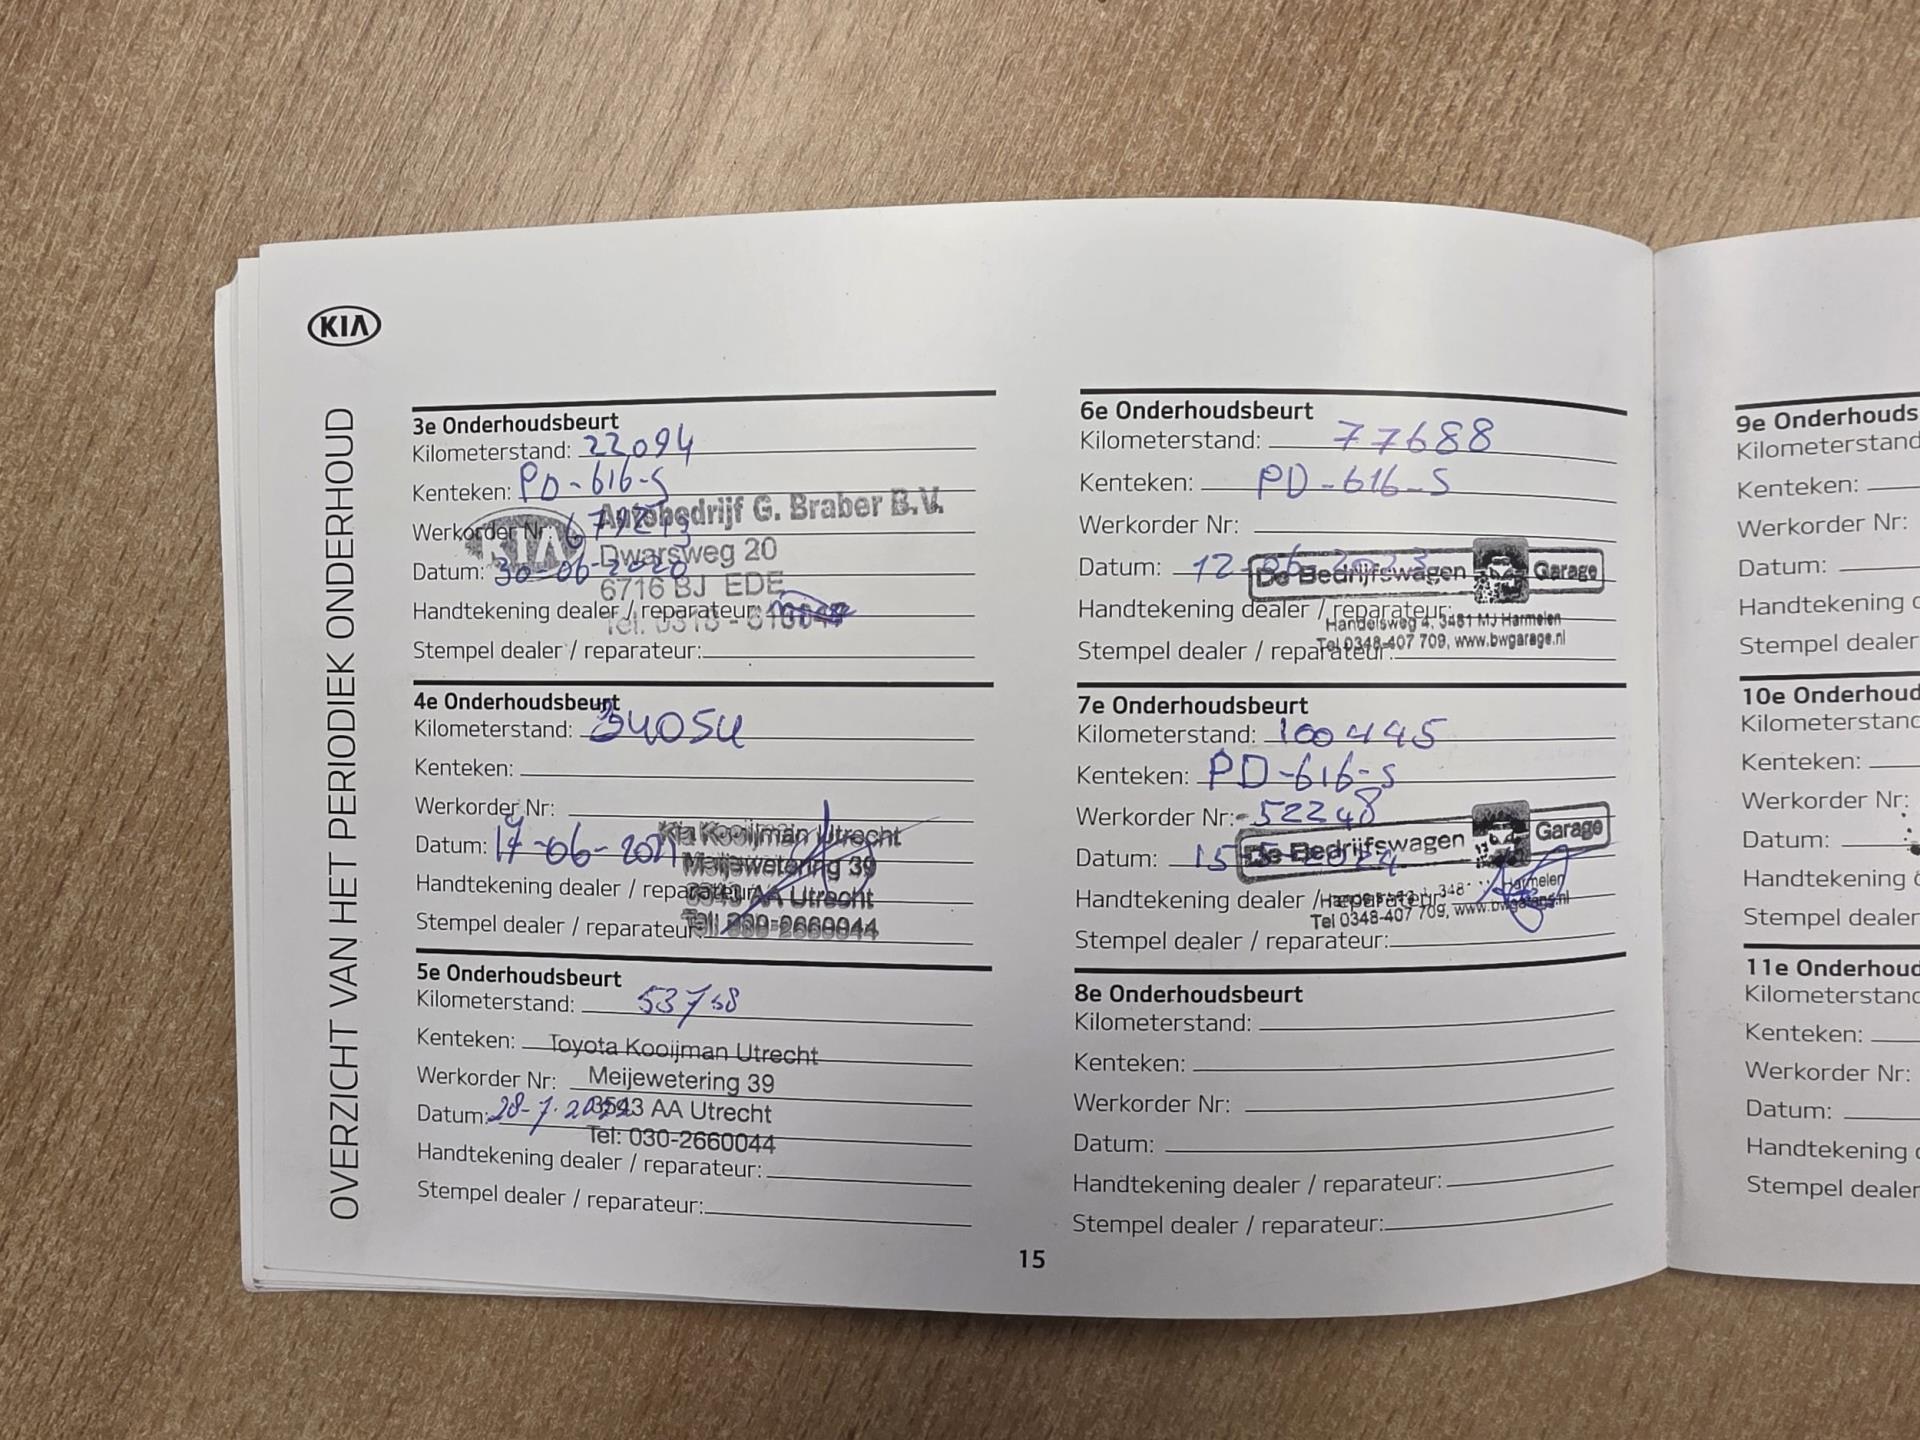 KIA
OVERZICHT VAN HET PERIODIEK ONDERHOUD
3e Onderhoudsbeurt
Kilometerstand: 22094
Kenteken: PD-616-S
Werkorder Nr:
Datum: 30-06-2020
Handtekening dealer / reparateur:
Stempel dealer / reparateur:
KIA
Autobedrijf G. Braber B.V.
Dwarsweg 20
6716 BJ EDE
Tel. 0318 -
4e Onderhoudsbeurt
Kilometerstand: 34054
Kenteken:
Werkorder Nr:
Datum: 17-06-2021
Handtekening dealer / reparateur:
Stempel dealer / reparateur:
Kia Kooijman Utrecht
Meijewetering 39
3543 AA Utrecht
Tel: 030-2660044
5e Onderhoudsbeurt
Kilometerstand:
Kenteken:
Werkorder Nr:
Datum: 28-7-2022
Handtekening dealer / reparateur:
Stempel dealer / reparateur:
Toyota Kooijman Utrecht
Meijewetering 39
3543 AA Utrecht
Tel: 030-2660044
6e Onderhoudsbeurt
Kilometerstand: 77688
Kenteken: PD-616-S
Werkorder Nr:
Datum: 12-06-2023
Handtekening dealer / reparateur:
Stempel dealer / reparateur:
De Bedrijfswagen Garage
Handelsweg 4, 3481 MJ Harmelen
Tel 0348-407 709, www.bwgarage.nl
7e Onderhoudsbeurt
Kilometerstand: 100445
Kenteken: PD-616-S
Werkorder Nr: 52248
Datum: 15-5-2024
Handtekening dealer / reparateur:
Stempel dealer / reparateur:
De Bedrijfswagen Garage
Harmelen
Tel 0348-407 709, www.bwgarage.nl
8e Onderhoudsbeurt
Kilometerstand:
Kenteken:
Werkorder Nr:
Datum:
Handtekening dealer / reparateur:
Stempel dealer / reparateur:
15
9e Onderhouds
Kilometerstand
Kenteken:
Werkorder Nr:
Datum:
Handtekening d
Stempel dealer
10e Onderhoud
Kilometerstand
Kenteken:
Werkorder Nr:
Datum:
Handtekening d
Stempel dealer
11e Onderhoud
Kilometerstand
Kenteken:
Werkorder Nr:
Datum:
Handtekening d
Stempel dealer